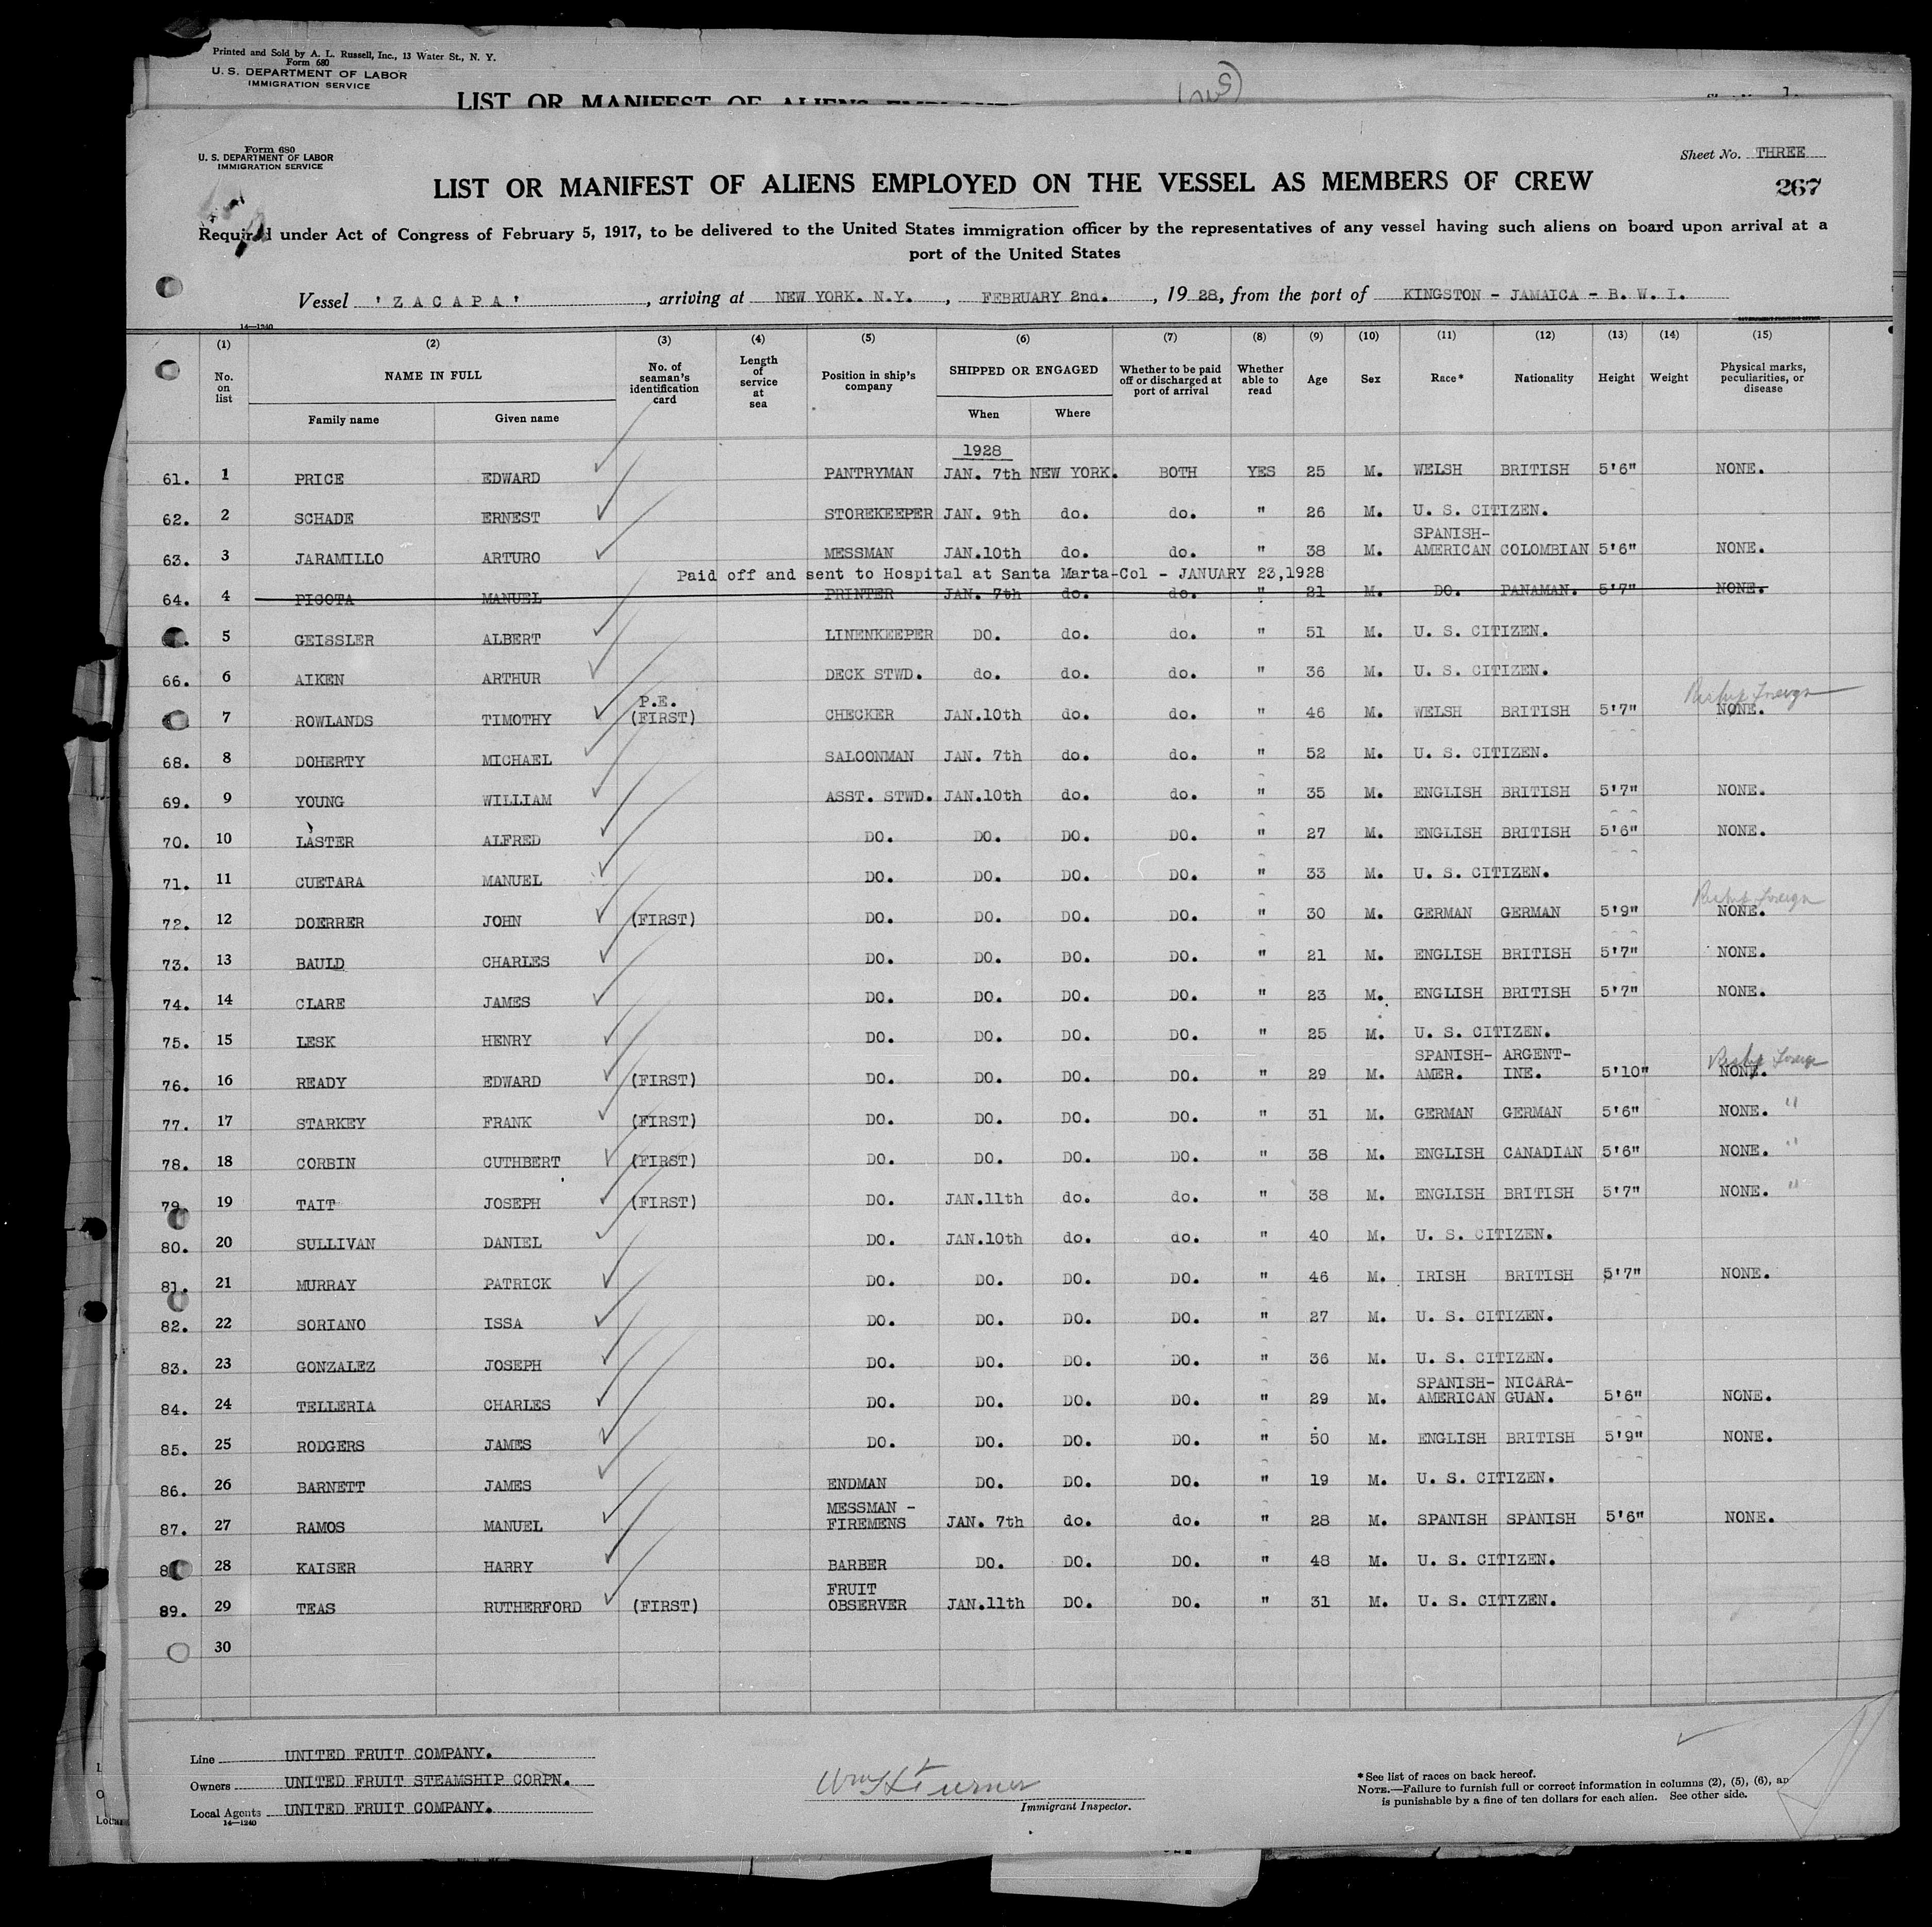 Printed and Sold by A. L. Russell, Inc., 13 Water St., N. Y.
Form 680
U. S. DEPARTMENT OF LABOR
IMMIGRATION SERVICE
LIST OR MANIFEST OF ALIENS
Form 680
U. S. DEPARTMENT OF LABOR
IMMIGRATION SERVICE
Sheet No. THREE
LIST OR MANIFEST OF ALIENS EMPLOYED ON THE VESSEL AS MEMBERS OF CREW
267
Required under Act of Congress of February 5, 1917, to be delivered to the United States immigration officer by the representatives of any vessel having such aliens on board upon arrival at a
port of the United States
Vessel 'ZACAPA', arriving at NEW YORK. N.Y., FEBRUARY 2nd., 1928, from the port of KINGSTON - JAMAICA - B. W. I.
14—1240
(1) (2) (3) (4) (5) (6) (7) (8) (9) (10) (11) (12) (13) (14) (15)
No. on list NAME IN FULL Family name Given name No. of seaman's identification card Length of service at sea Position in ship's company SHIPPED OR ENGAGED When Where Whether to be paid off or discharged at port of arrival Whether able to read Age Sex Race* Nationality Height Weight Physical marks, peculiarities, or disease
1928
61. 1 PRICE EDWARD PANTRYMAN JAN. 7th NEW YORK. BOTH YES 25 M. WELSH BRITISH 5'6" NONE.
62. 2 SCHADE ERNEST STOREKEEPER JAN. 9th do. do. " 26 M. U. S. CITIZEN.
63. 3 JARAMILLO ARTURO MESSMAN JAN.10th do. do. " 38 M. SPANISH-AMERICAN COLOMBIAN 5'6" NONE.
Paid off and sent to Hospital at Santa Marta-Col - JANUARY 23,1928
64. 4 PICOTA MANUEL PRINTER JAN. 7th do. do. " 21 M. DO. PANAMAN. 5'7" NONE.
5 GEISSLER ALBERT LINENKEEPER DO. do. do. " 51 M. U. S. CITIZEN.
66. 6 AIKEN ARTHUR DECK STWD. do. do. do. " 36 M. U. S. CITIZEN.
7 ROWLANDS TIMOTHY P.E. (FIRST) CHECKER JAN.10th do. do. " 46 M. WELSH BRITISH 5'7" NONE. Reship Foreign
68. 8 DOHERTY MICHAEL SALOONMAN JAN. 7th do. do. " 52 M. U. S. CITIZEN.
69. 9 YOUNG WILLIAM ASST. STWD. JAN.10th do. do. " 35 M. ENGLISH BRITISH 5'7" NONE.
70. 10 LASTER ALFRED DO. DO. DO. DO. " 27 M. ENGLISH BRITISH 5'6" NONE.
71. 11 CUETARA MANUEL DO. DO. DO. DO. " 33 M. U. S. CITIZEN.
72. 12 DOERRER JOHN (FIRST) DO. DO. DO. DO. " 30 M. GERMAN GERMAN 5'9" NONE. Reship Foreign
73. 13 BAULD CHARLES DO. DO. DO. DO. " 21 M. ENGLISH BRITISH 5'7" NONE.
74. 14 CLARE JAMES DO. DO. DO. DO. " 23 M. ENGLISH BRITISH 5'7" NONE.
75. 15 LESK HENRY DO. DO. DO. DO. " 25 M. U. S. CITIZEN.
76. 16 READY EDWARD (FIRST) DO. DO. DO. DO. " 29 M. SPANISH-AMER. ARGENT-INE. 5'10" NONE. Reship Foreign
77. 17 STARKEY FRANK (FIRST) DO. DO. DO. DO. " 31 M. GERMAN GERMAN 5'6" NONE. "
78. 18 CORBIN CUTHBERT (FIRST) DO. DO. DO. DO. " 38 M. ENGLISH CANADIAN 5'6" NONE. "
79. 19 TAIT JOSEPH (FIRST) DO. JAN.11th do. do. " 38 M. ENGLISH BRITISH 5'7" NONE. "
80. 20 SULLIVAN DANIEL DO. JAN.10th do. do. " 40 M. U. S. CITIZEN.
81. 21 MURRAY PATRICK DO. DO. DO. DO. " 46 M. IRISH BRITISH 5'7" NONE.
82. 22 SORIANO ISSA DO. DO. DO. DO. " 27 M. U. S. CITIZEN.
83. 23 GONZALEZ JOSEPH DO. DO. DO. DO. " 36 M. U. S. CITIZEN.
84. 24 TELLERIA CHARLES DO. DO. DO. DO. " 29 M. SPANISH-AMERICAN NICARA-GUAN. 5'6" NONE.
85. 25 RODGERS JAMES DO. DO. DO. DO. " 50 M. ENGLISH BRITISH 5'9" NONE.
86. 26 BARNETT JAMES ENDMAN DO. DO. DO. " 19 M. U. S. CITIZEN.
87. 27 RAMOS MANUEL MESSMAN - FIREMENS JAN. 7th do. do. " 28 M. SPANISH SPANISH 5'6" NONE.
28 KAISER HARRY BARBER DO. DO. DO. " 48 M. U. S. CITIZEN.
89. 29 TEAS RUTHERFORD (FIRST) FRUIT OBSERVER JAN.11th DO. DO. " 31 M. U. S. CITIZEN.
30
Line UNITED FRUIT COMPANY.
Owners UNITED FRUIT STEAMSHIP CORPN.
Local Agents UNITED FRUIT COMPANY.
14—1240
Wm H Turner
Immigrant Inspector.
*See list of races on back hereof.
NOTE.—Failure to furnish full or correct information in columns (2), (5), (6),
is punishable by a fine of ten dollars for each alien. See other side.